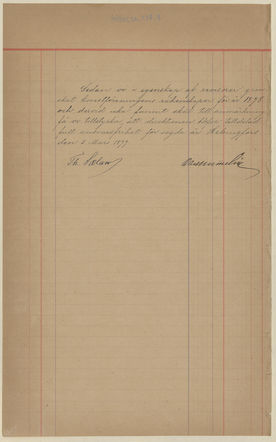 Sedan vi i egenskap af revisorer gran-
skat konstföreningens räkenskaper för år 1898
och dervid icke funnit skäl till anmärkning
få vi tillstyrka, att direktionen måtte tilldelas
full ansvarsfrihet för sagda år. Helsingfors
den 2 Mars 1899.
Th.